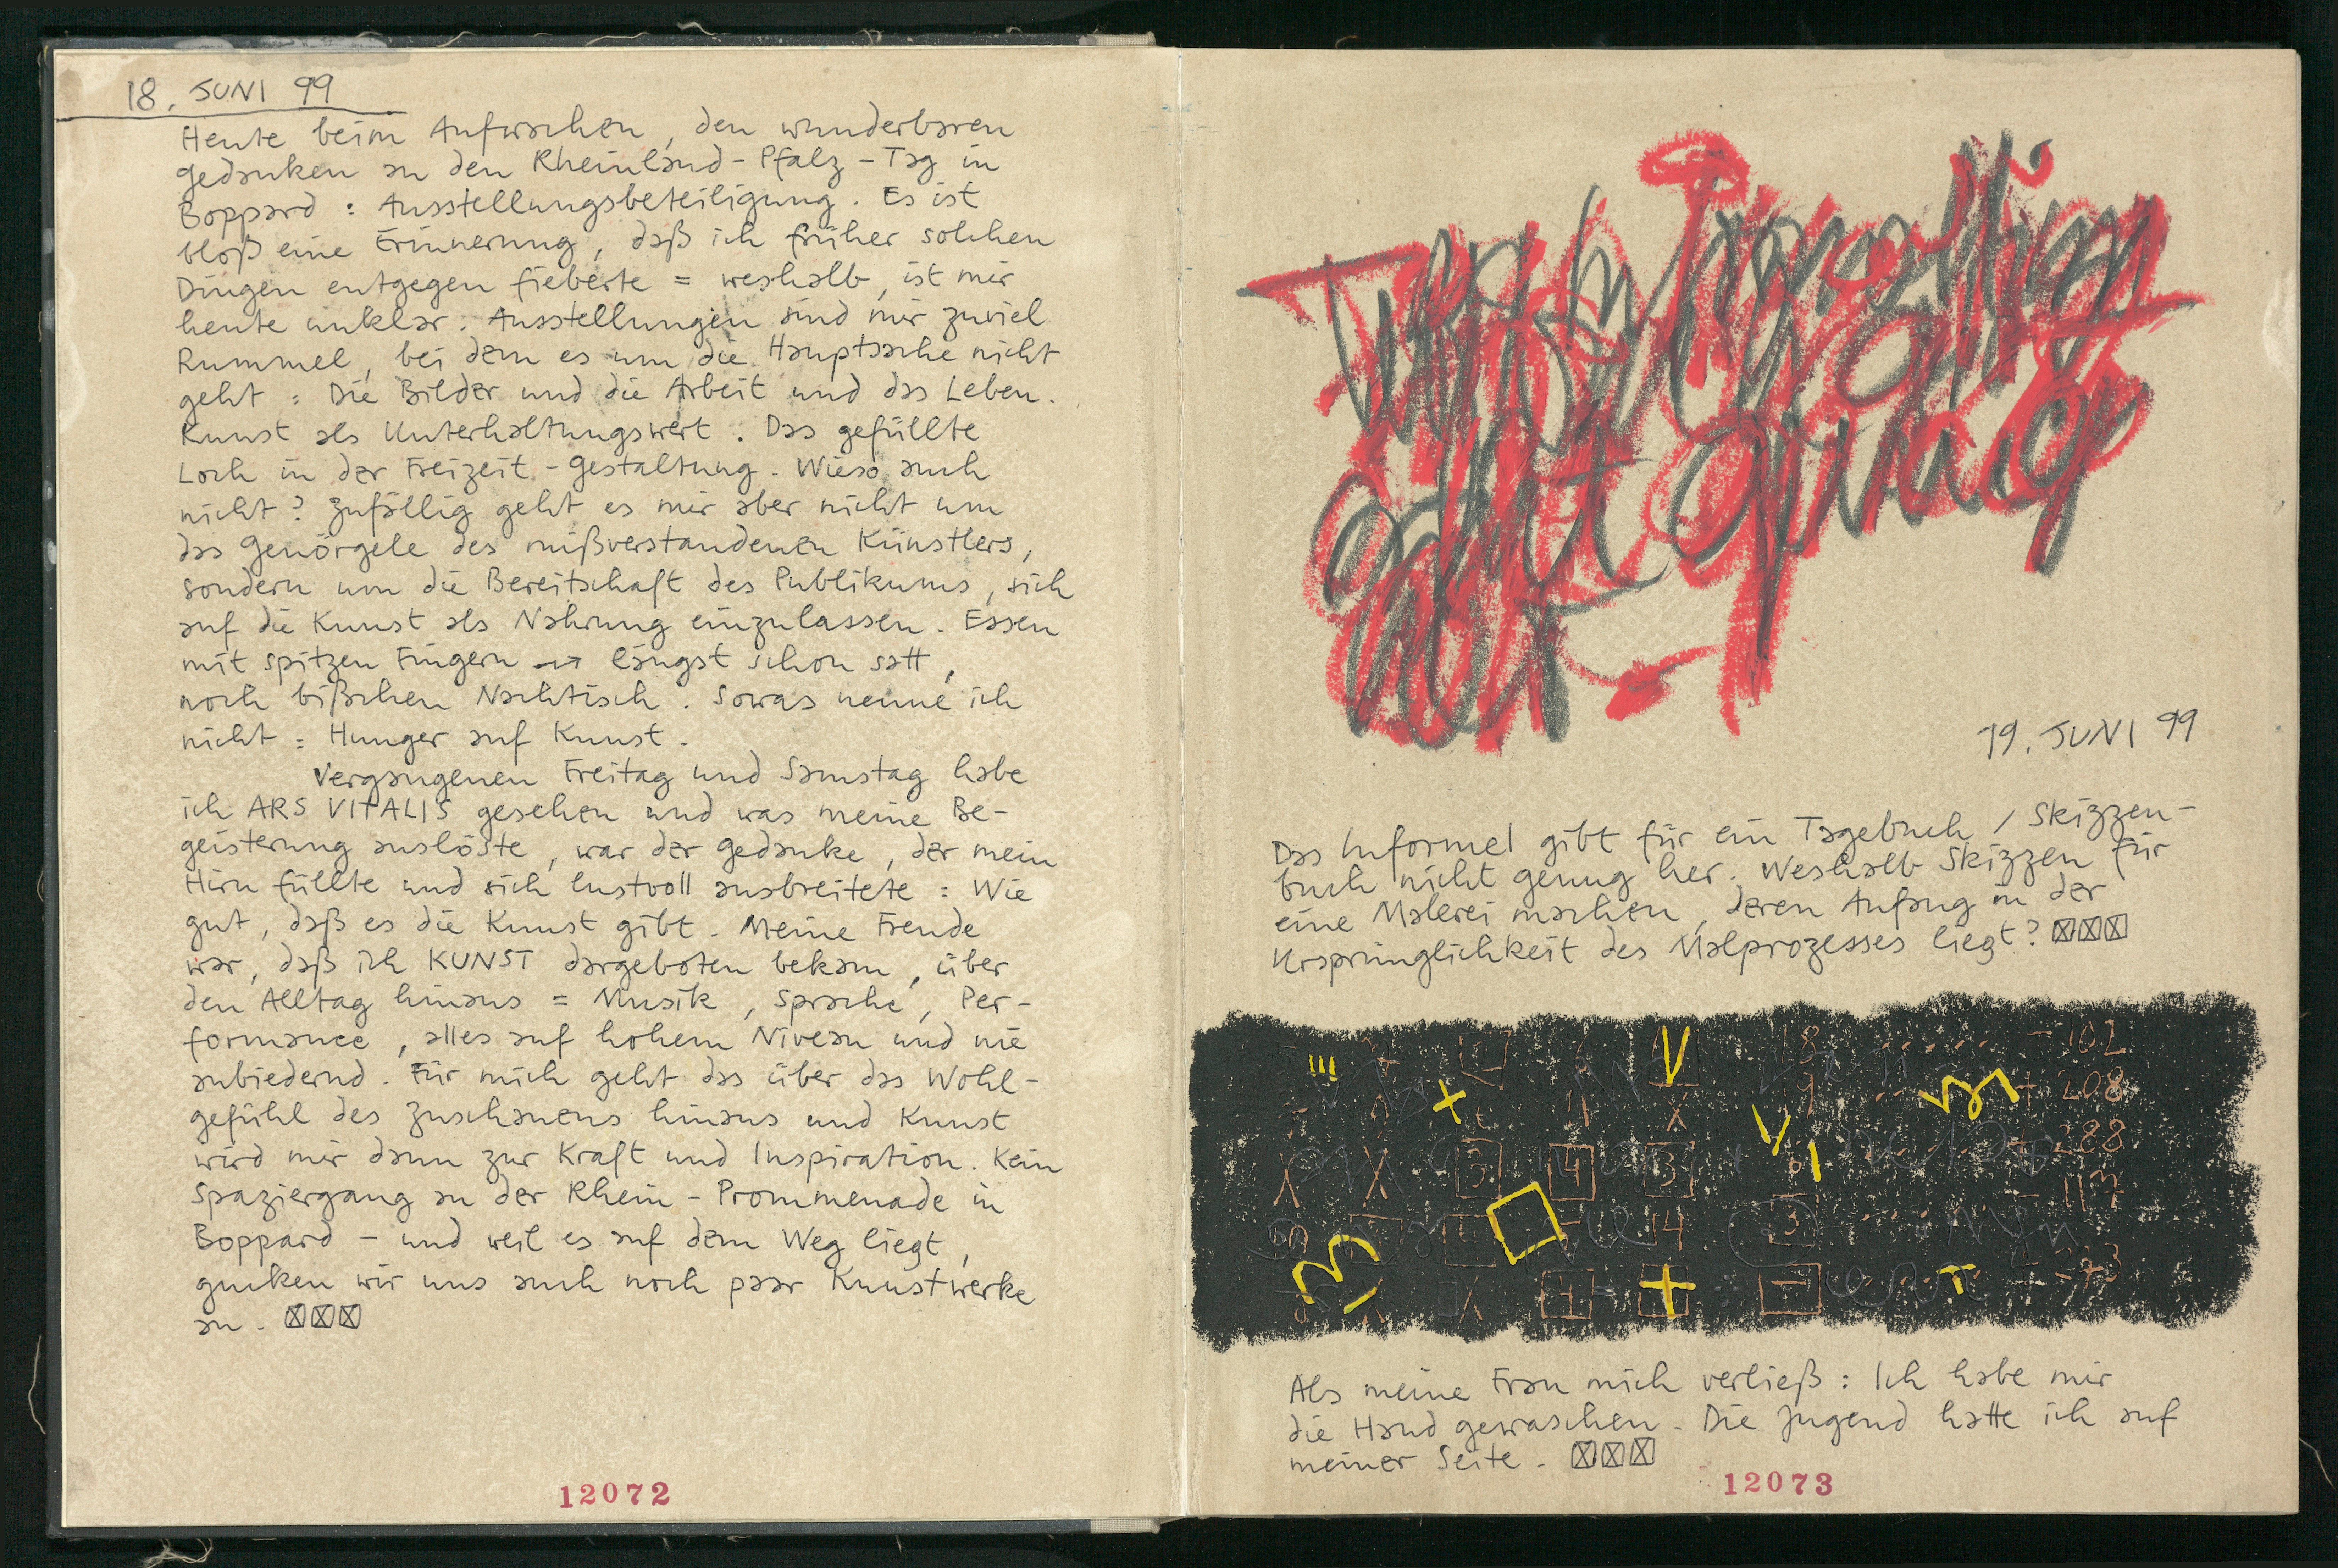 18. JUNI 99
Heute beim Aufwachen, den wunderbaren
Gedanken an den Rheinland-Pfalz-Tag in
Boppard: Ausstellungsbeteiligung. Es ist
bloß eine Erinnerung, daß ich früher solchen
Dingen entgegen fieberte = weshalb, ist mir
heute unklar. Ausstellungen sind mir zuviel
Rummel, bei dem es um die Hauptsache nicht
geht: Die Bilder und die Arbeit und das Leben.
Kunst als Unterhaltungswert. Das gefüllte
Loch in der Freizeit-Gestaltung. Wieso auch
nicht? Zufällig geht es mir aber nicht um
das Genörgele des mißverstandenen Künstlers,
sondern um die Bereitschaft des Publikums, sich
auf die Kunst als Nahrung einzulassen. Essen
mit spitzen Fingern → längst schon satt,
noch bißchen Nachtisch. Sowas nenne ich
nicht: Hunger auf Kunst.
Vergangenen Freitag und Samstag habe
ich ARS VITALIS gesehen und was meine Be-
geisterung auslöste, war der Gedanke, der mein
Hirn füllte und sich lustvoll ausbreitete: Wie
gut, daß es die Kunst gibt. Meine Freude
war, daß ich KUNST dargeboten bekam, über
den Alltag hinaus = Musik, Sprache, Per-
formance, alles auf hohem Niveau und nie
anbiedernd. Für mich geht das über das Wohl-
gefühl des Zuschauens hinaus und Kunst
wird mir dann zur Kraft und Inspiration. Kein
Spaziergang an der Rhein-Prommenade in
Boppard – und weil es auf dem Weg liegt,
gucken wir uns auch noch paar Kunstwerke
an.
12072
19. JUNI 99
Das Informel gibt für ein Tagebuch / Skizzen-
buch nicht genug her. Weshalb Skizzen für
eine Malerei machen, deren Anfang in der
Ursprünglichkeit des Malprozesses liegt?
102
208
288
Als meine Frau mich verließ: Ich habe mir
die Hand gewaschen. Die Jugend hatte ich auf
meiner Seite.
12073